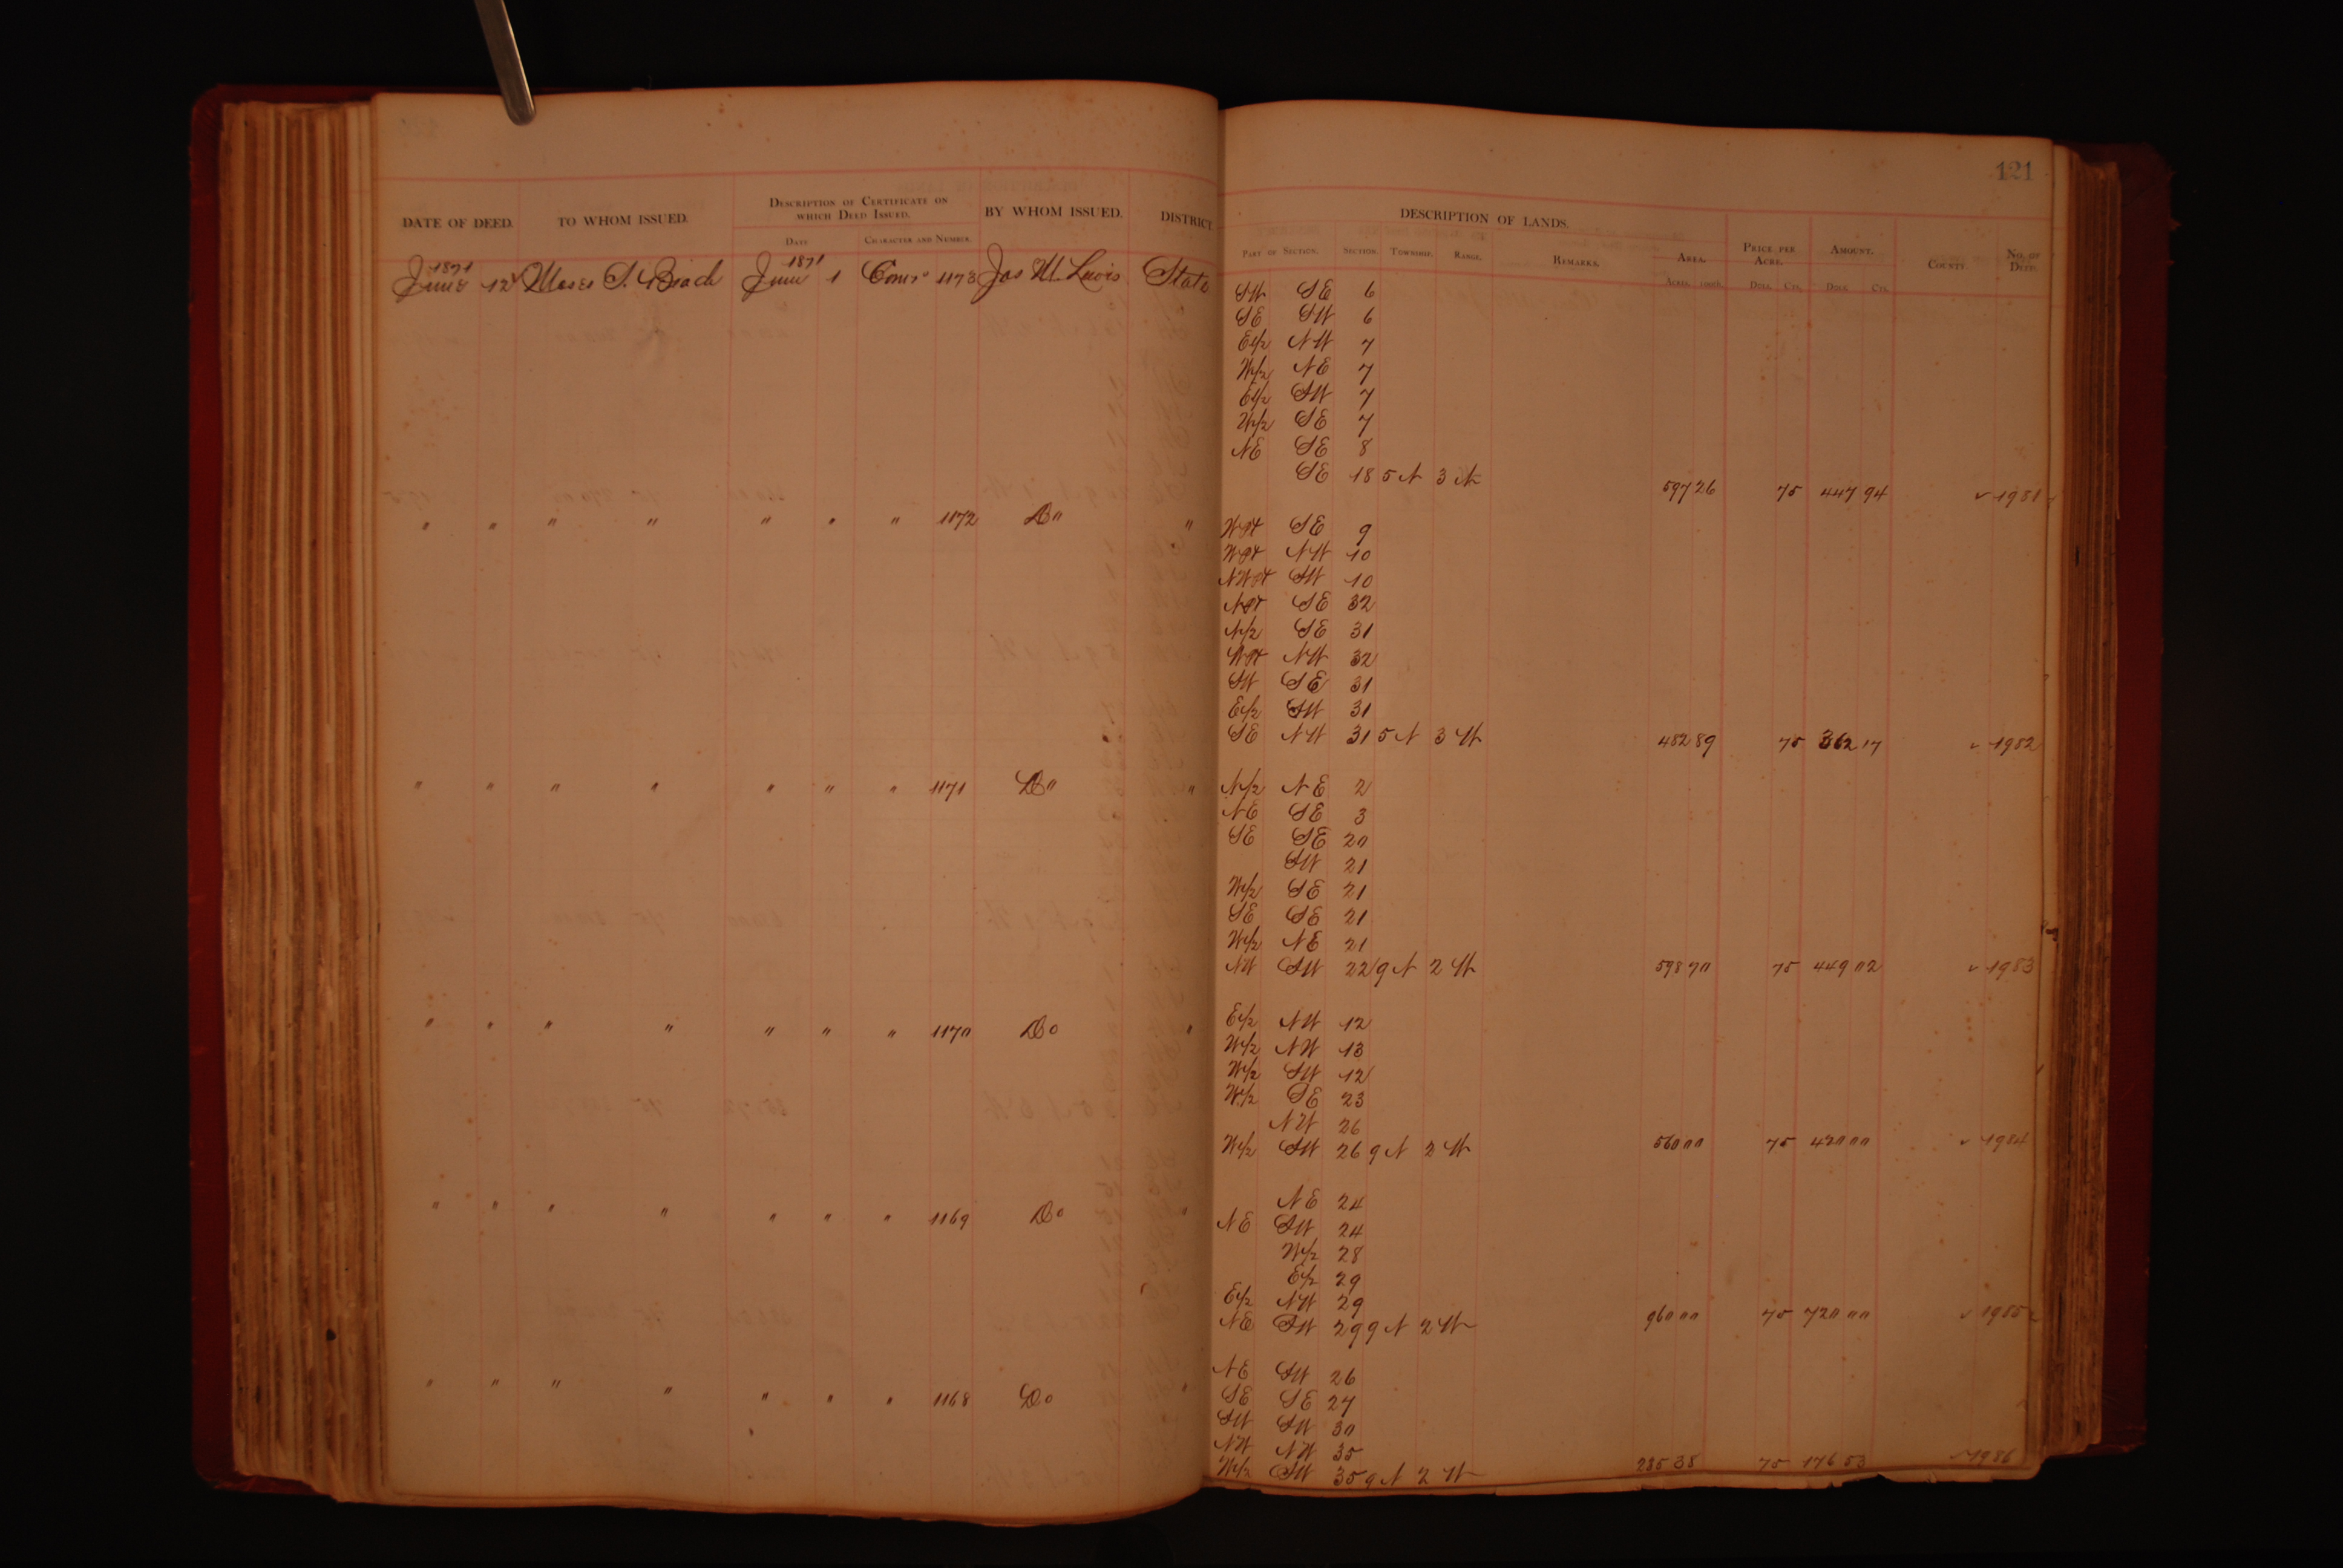 121
DATE OF DEED. TO WHOM ISSUED. DESCRIPTION OF CERTIFICATE ON WHICH DEED ISSUED. BY WHOM ISSUED. DISTRICT. DESCRIPTION OF LANDS. PRICE PER ACRE. AMOUNT. COUNTY. NO. OF DEED.
DATE CHARACTER AND NUMBER. PART OF SECTION. SECTION. TOWNSHIP. RANGE. REMARKS. AREA.
ACRES 100TH. DOLS. CTS. DOLS. CTS.
1871 1871
June 12 Moses S. Beach June 1 1173 Jas M. Lewis State SW SE 6
SE SW 6
E1/2 NW 7
W1/2 NE 7
E1/2 SW 7
W1/2 SE 7
NE SE 8
SE 18 5 N 3 597 26 75 447 94 ✓ 1981
" " " " " " " 1172 Do " W pt SE 9
W pt NW 10
NW pt SW 10
N pt SE 32
N1/2 SE 31
NW 32
SW SE 31
E1/2 SW 31
SE NW 31 5 N 3 W 482 89 75 362 17 ✓ 1982
" " " " " " " 1171 Do " N1/2 NE 2
NE SE 3
SE SE 20
SW 21
W1/2 SE 21
SE SE 21
W1/2 NE 21
NW SW 22 9 N 2 W 598 70 75 449 02 ✓ 1983
" " " " " " " 1170 Do " E1/2 NW 12
W1/2 NW 13
W1/2 SW 12
W1/2 SE 23
NW 26
W1/2 SW 26 9 N 2 W 560 00 75 420 00 ✓ 1984
" " " " " " " 1169 Do " NE 24
NE SW 24
W1/2 28
E1/2 29
E1/2 NW 29
NE SW 29 9 N 2 W 960 00 75 720 00 ✓ 1985
" " " " " " " 1168 Do " NE SW 26
SE SE 27
SW SW 30
NW NW 35
W1/2 SW 35 9 N 2 W 235 38 75 176 53 ✓ 1986